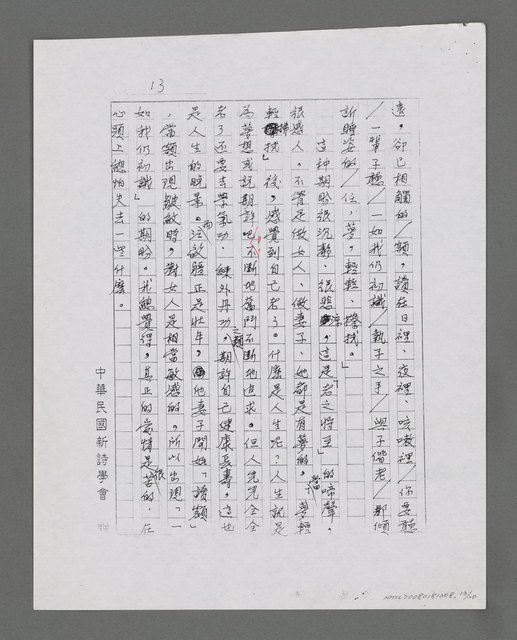 13
遠。卻已相觸的/額。讀在日裡、夜裡、咳嗽裡/你要聽
/一輩子聽/一如我仍初識/執子之手/與子偕老/那傾
訴睡姿的/位,夢,輕輕、擦拭。」
這种期盼很沉靜、很悲涼,這是「老之將至」的啼聲。
很感人。不管是做女人、做妻子,她都是有夢的。當夢輕
輕「擦拭」後,感覺到自己老了。什麼是人生呢?人生就是
為夢想或說期許吧,不斷地奮鬥不斷地追求。但人完完全全
老了還要去學氣功、練外丹功之類,期許自己健康長壽。這也
是人生的晚景。而汪啟疆正是壯年,他妻子開始「讀額」
,當額出現皺紋時,對女人是相當敏感的。所以出現「一
如我仍初識」的期盼。我總覺得,真正的愛情是很苦的,在
心頭上總怕失去一些什麼。
中華民國新詩學會
NMTL20080181208, 13/20